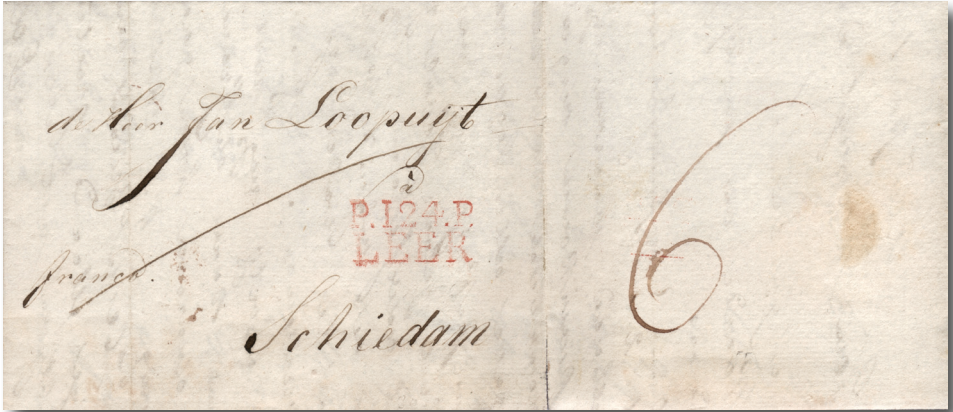 de Heer Jan Loopuyt
à
P.124.P.
LEER
franco.
Schiedam
6